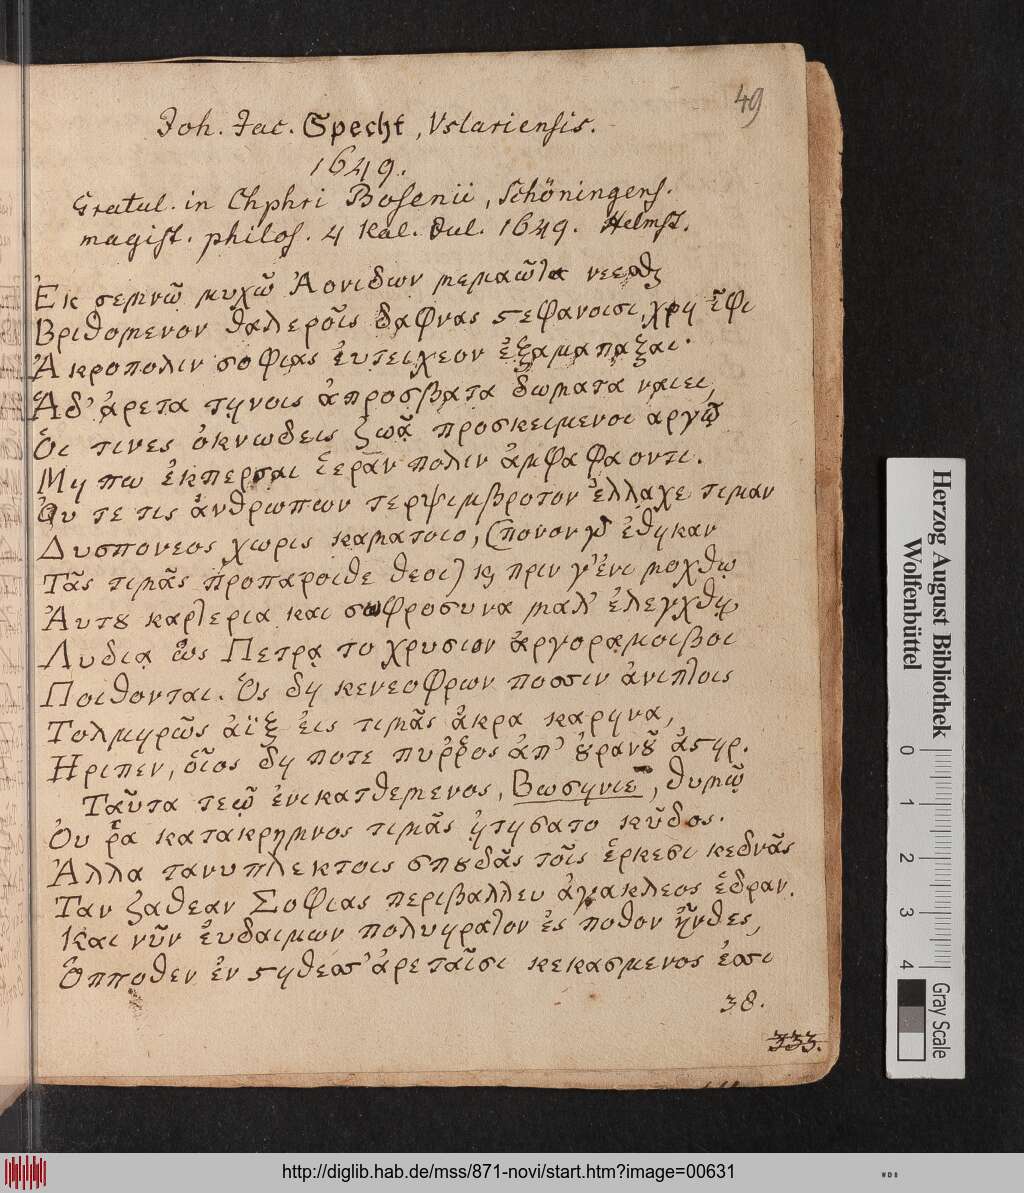 49
Joh. Jac. Specht, Vslariensis.
1649.
Gratul. in Chphri Bosenii, Schöningens.
magist. philos. 4 Kal. Jul. 1649. Helmst.
Ἐκ σεμνῶ μυχῶ Ἀονιδων μεμαῶτα
Βριθομενον θαλεροῖς δαφνας ϛεφανοισι, χρη ἶφι
Ἀκροπολιν σοφιας ἐυτειχεον ἐξαμαπαξαι·
Ἁδ' ἀρετα τηνοις ἀπροσβατα δωματα ναιει,
Ὁι τινες ὀκνωδεις ζωᾷ προσκειμενοι αργῷ
Μη πω ἐκπερσαι ἱερᾶν πολιν ἀμφαφαοντι.
Ὀυ τε τις ἀνθρωπων τερψιμβροτον ἐλλαχε τιμαν
Δυσπονεος χωρις καματοιο, (πονον γδ ἐθηκαν
Τᾶς τιμᾶς προπαροιθε θεοι) κ πριν γ' ἐνι μοχθῳ
Ἀυτȣ καρτερια και σωφροσυνα μαλ' ἐλεγχθῃ
Λυδιᾳ ὡς Πετρᾳ το χρυσιον ἀργοραμοιβοι
Ποιθονται. Ὁς δη κενεοφρων ποσσιν ἀνιπλοις
Τολμηρῶς ἀΐξ ἐις τιμᾶς ἀκρα καρηνα,
Ηριπεν, οἷος δη ποτε πυῤῥος ἀπ' ȣρανȣ͂ ἀϛηρ.
Ταῦτα τεῷ ἐνικατθεμενος, Βωσηνιε, θυμῷ
Ὀυ ῥα κατακρημνος τιμᾶς ᾐτησατο κῦδος·
Ἀλλα τανυπλεκτοις σπȣδᾶς τοῖς ἑρκεσι κεδνᾶς
Ταν ζαθεαν Σοφιας περιβαλλευ ἀγακλεος ἑδραν.
Και νῦν ἐυδαιμων πολυηρατον ἐς ποθον ἦνθες,
Ὁπποθεν ἐν ϛηθεσσ' ἀρεταῖσι κεκασμενος ἐσσι
38.
333.
Herzog August Bibliothek
Wolfenbüttel
0 1 2 3 4
Gray Scale
http://diglib.hab.de/mss/871-novi/start.htm?image=00631
WDB